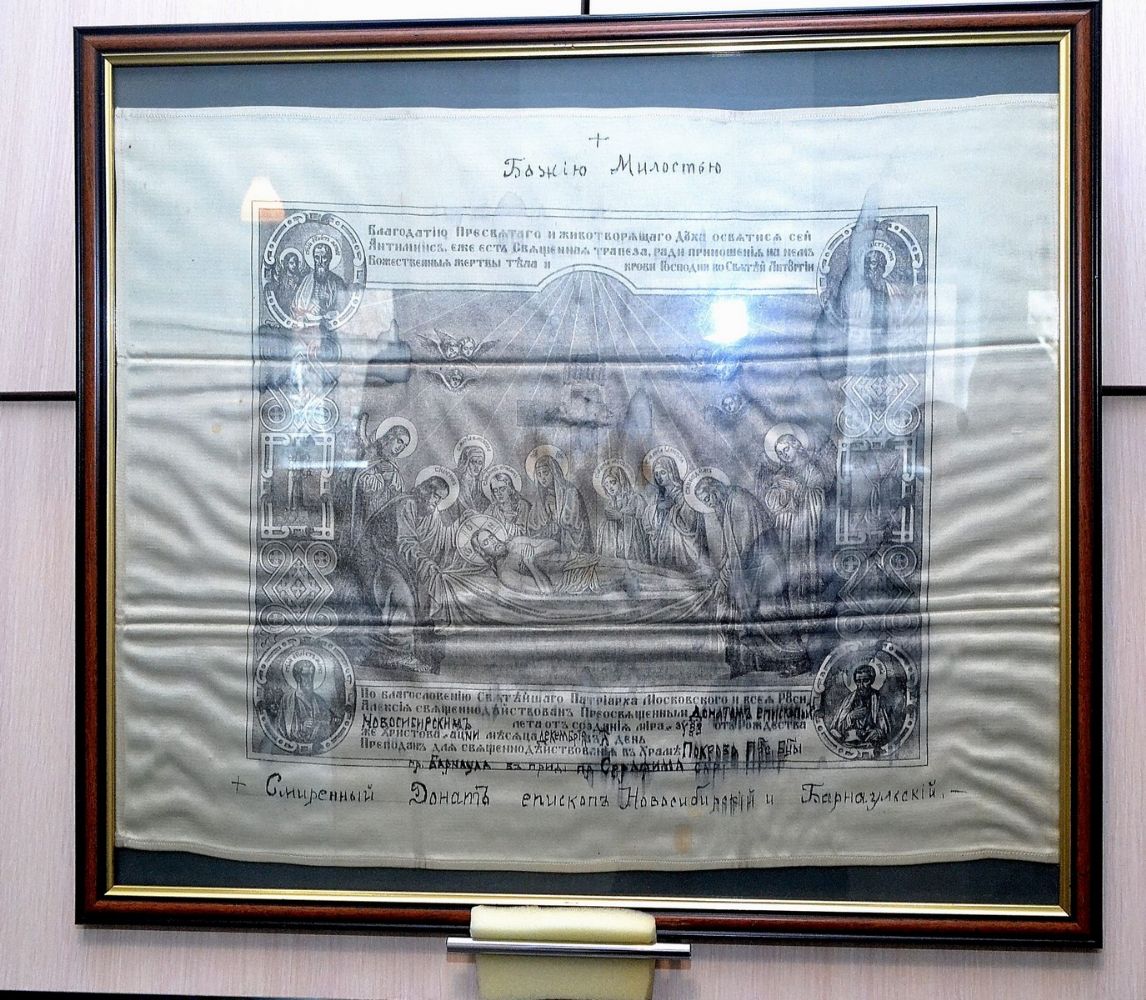 Божію Милостью
Благодатію Пресвятаго и животворящаго Дꙋха освятися сей
Антиминсъ, еже есть Священная трапеза, ради приношенія на немъ
Божественныя жертвы тѣла и крови Господни во Святѣй Литꙋргіи
По благословенію Святѣйшаго Патріарха Московского и всея Рꙋсіи
Алексія священнодѣйствованъ Преосвященнымъ Донатомъ епископомъ
Новосибирскимъ лета отъ созданія міра отъ Рождества
же Христова мѣсяца декембрія въ день
Преподанъ для священнодѣйствованія въ Храмѣ Покрова
гр. Барнаула въ прид. пр. Серафима
+ Смиренный Донатъ епископъ Новосибирскій и Барнаульскій.–